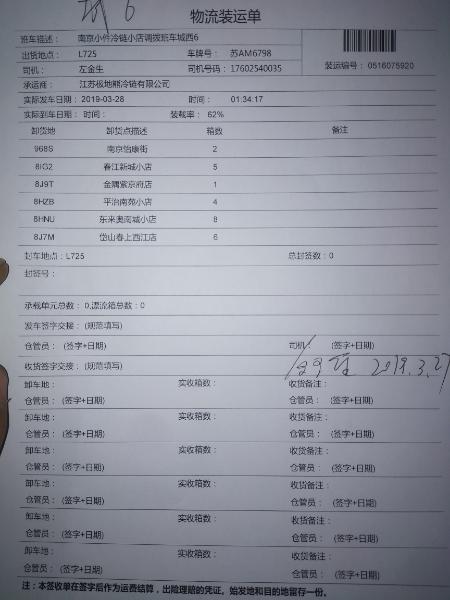 城6
物流装运单
班车描述： 南京小件冷链小店调拨班车城西6
出货地点： L725 车牌号： 苏AM6798
司机： 左金生 司机号码： 17602540035 装运编号： 0516075920
承运商： 江苏极地熊冷链有限公司
实际发车日期： 2019-03-28 时间： 01:34:17
实际到车日期： 时间： 装载率： 62%
卸货地 卸货点描述 箱数 备注
968S 南京怡康街 2
8IG2 春江新城小店 5
8J9T 金隅紫京府店 1
8HZB 平治南苑小店 4
8HNU 东来奥南城小店 8
8J7M 岱山春上西江店 6
封车地点：L725 总封签数：0
封签号：
承载单元总数：0,漂流箱总数：0
发车签字交接： (规范填写)
仓管员： (签字+日期) 司机： (签字+日期)
收货签字交接： (规范填写) 2019.3.27
卸车地： 实收箱数： 收货备注：
仓管员： (签字+日期) 仓管员： (签字+日期)
卸车地： 实收箱数： 收货备注：
仓管员： (签字+日期) 仓管员： (签字+日期)
卸车地： 实收箱数： 收货备注：
仓管员： (签字+日期) 仓管员： (签字+日期)
卸车地： 实收箱数： 收货备注：
仓管员： (签字+日期) 仓管员： (签字+日期)
卸车地： 实收箱数： 收货备注：
仓管员： (签字+日期) 仓管员： (签字+日期)
卸车地： 实收箱数： 收货备注：
仓管员： (签字+日期) 仓管员： (签字+日期)
注：本签收单在签字后作为运费结算，出险理赔的凭证。始发地和目的地留存一份。